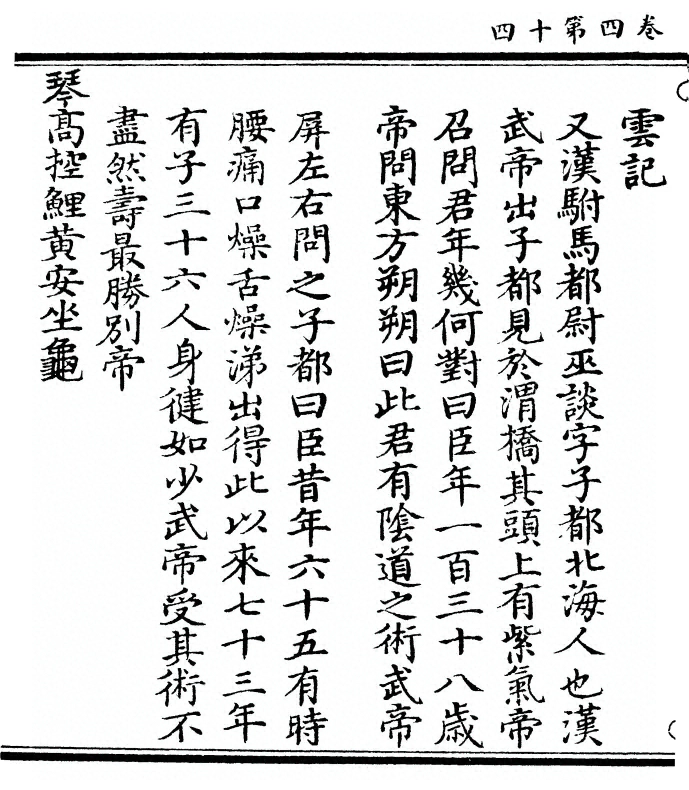 卷四第十四
雲記
又漢駙馬都尉巫談字子都北海人也漢
武帝出子都見於渭橋其頭上有紫氣帝
召問君年幾何對曰臣年一百三十八歲
帝問東方朔朔曰此君有陰道之術武帝
屏左右問之子都曰臣昔年六十五有時
腰痛口燥舌燥涕出得此以來七十三年
有子三十六人身健如少武帝受其術不
盡然壽最勝別帝
琴高控鯉黃安坐龜